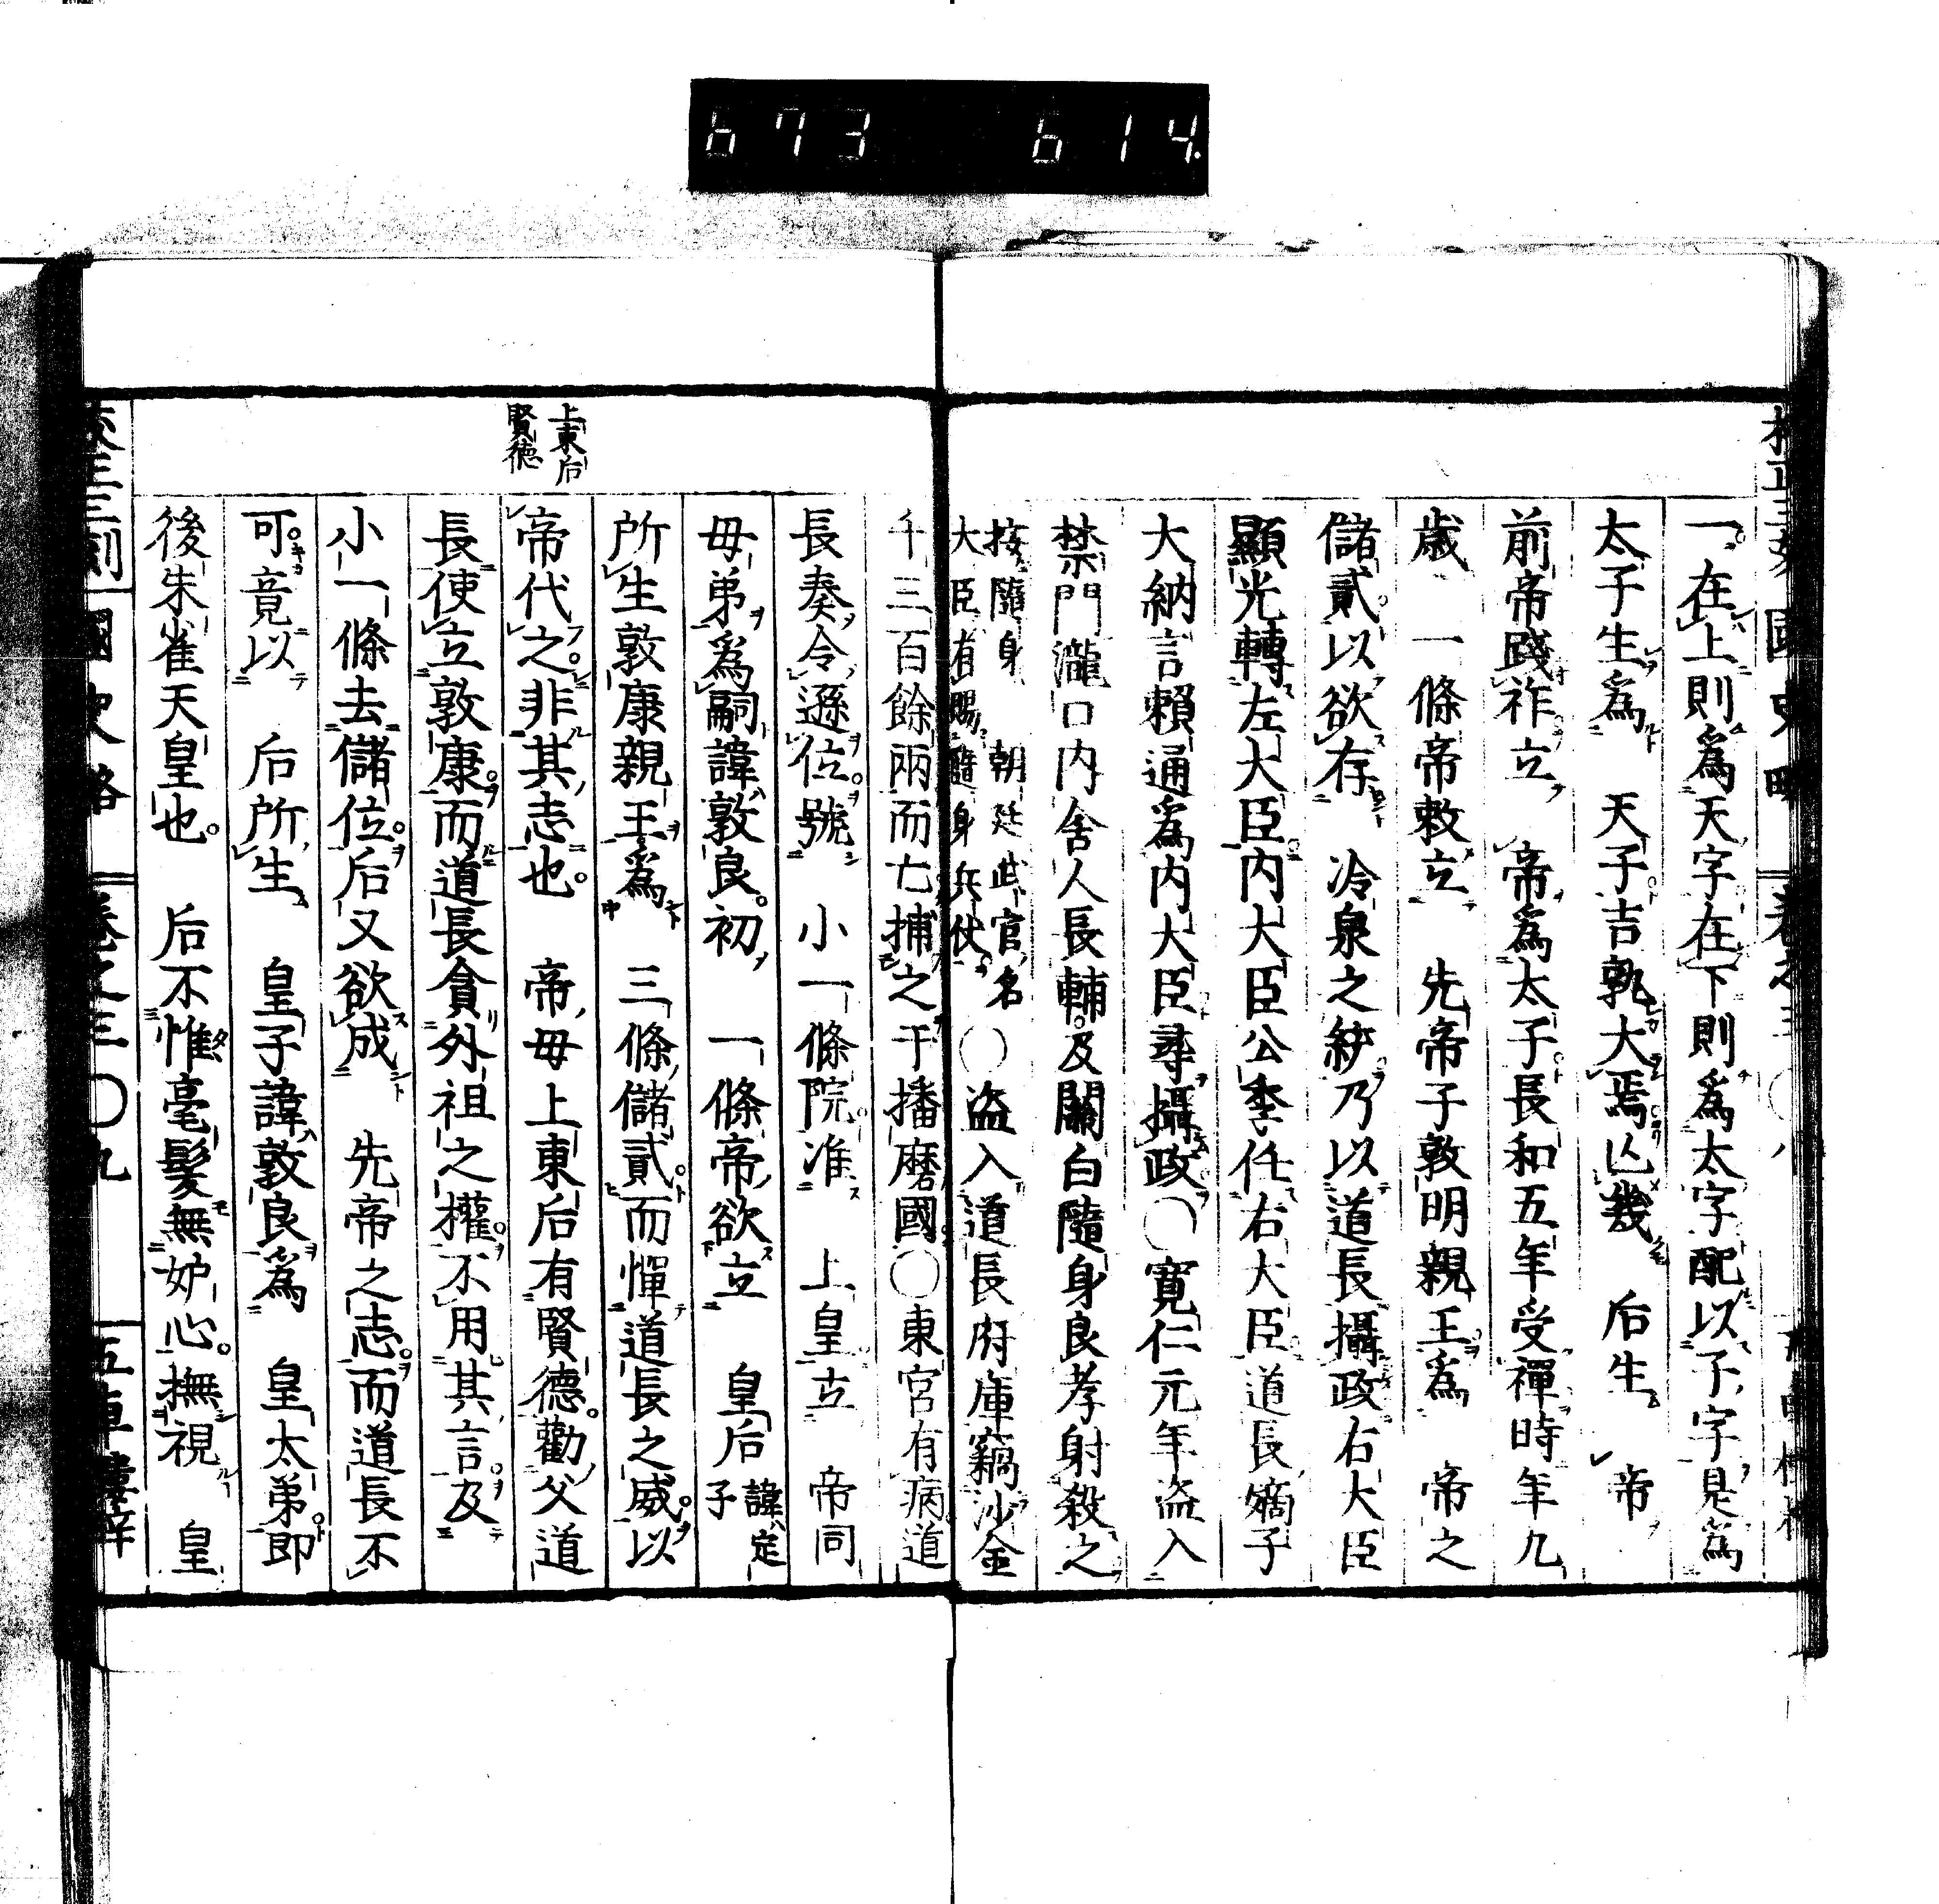 673 614
一在上則爲天字在下則爲太字配以子字是爲
太子生爲 天子吉孰大焉亾幾 后生 帝
前帝踐祚立 帝爲太子長和五年受禪時年九
歲 一條帝敕立 先帝子敦明親王爲 帝之
儲貳以欲存 冷泉之統乃以道長攝政右大臣
顯光轉左大臣内大臣公季任右大臣道長嫡子
大納言賴通爲内大臣尋攝政○寛仁元年盜入
禁門瀧口内舍人長輔及關白隨身良孝射殺之
按隨身 朝廷武官名
大臣有賜隨身兵仗
○盜入道長府庫竊沙金
千三百餘兩而亡捕之于播磨國○東宮有病道
長奏令遜位號 小一條院准 上皇立 帝同
母弟爲嗣諱敦良初 一條帝欲立 皇后諱定子
所生敦康親王爲 三條儲貳而憚道長之威以
上東后
賢德
帝代之非其志也 帝母上東后有賢德勸父道
長使立敦康而道長貪外祖之權不用其言及
小一條去儲位后又欲成 先帝之志而道長不
可竟以 后所生 皇子諱敦良爲 皇太弟即
後朱雀天皇也 后不惟毫髮無妒心撫視 皇
國史略 卷之三○九 五車樓梓